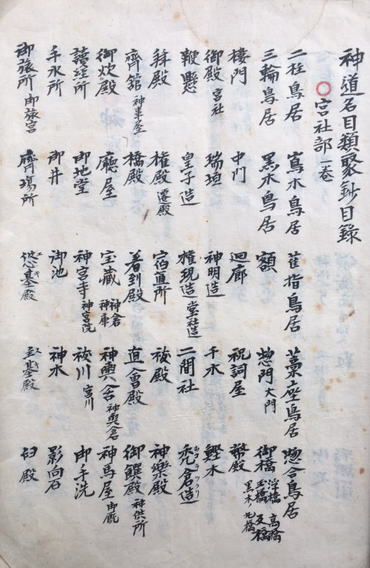 神道名目類聚鈔目録
○宮社部 一巻
二柱鳥居 嶌木鳥居 雀指鳥居 藁座鳥居 惣合鳥居
三輪鳥居 黒木鳥居 額 惣門 大門 御橋 浮橋 高橋 玉橋 反橋 黒木ノ丸橋
樓門 中門 迴廊 祝詞屋 幣殿
御殿 宮社 瑞垣 神明造 千木 鰹木
鞭懸 皇子造 権現造 宮社造 二間社 禿倉造
拜殿 権殿 遷殿 宿直所 祓殿 神樂殿
齋館 神事屋 橋殿 著到殿 直會殿 御饌殿 神供所
御炊殿 廳屋 宝蔵 神倉 神庫 神輿舍 神輿倉 神馬屋 御厩
讀經所 御地堂 神宮寺 神宮院 祓川 宮川 御手洗
手水所 御井 御池 神水 影向石
御旅所 御旅宮 齋場所 悠基殿 主基殿 臼殿